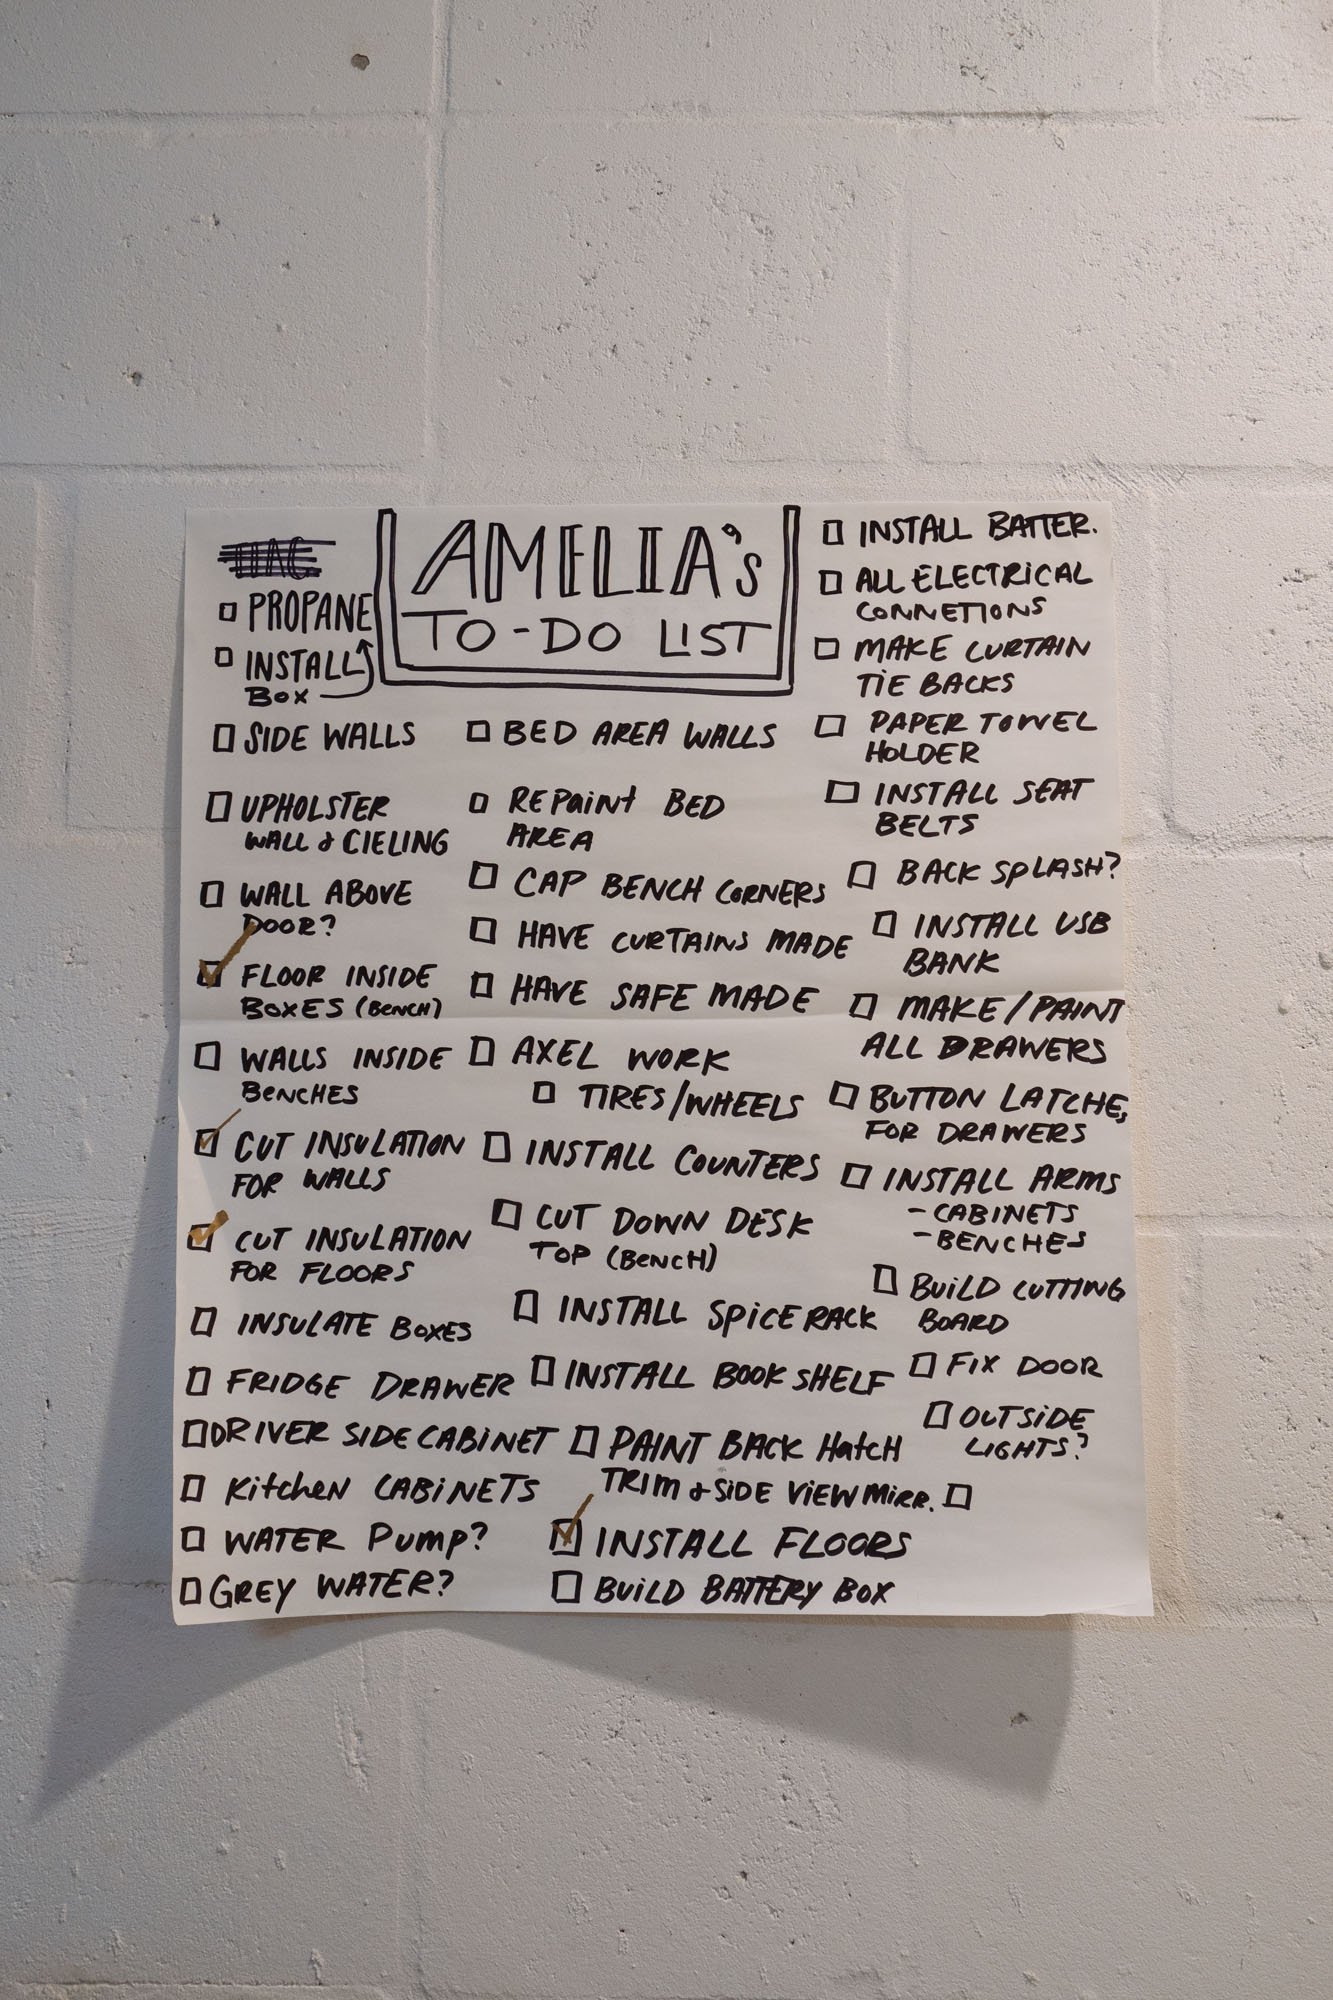 AMELIA's
TO-DO LIST
PROPANE
INSTALL
BOX
SIDE WALLS
UPHOLSTER
WALL & CIELING
WALL ABOVE
DOOR?
FLOOR INSIDE
BOXES (BENCH)
WALLS INSIDE
BENCHES
CUT INSULATION
FOR WALLS
CUT INSULATION
FOR FLOORS
INSULATE BOXES
FRIDGE DRAWER
DRIVER SIDE CABINET
KitcheN CABiNETS
WATER Pump?
GREY WATER?
BED AREA WALLS
REPaiNt BED
AREA
CAP BENCH CORNERS
HAVE CURTAINS MADE
HAVE SAFE MADE
AXEL WORK
TIRES/WHEELS
INSTALL COUNTERS
CUT DOWN DESK
TOP (BENCH)
INSTALL SPICE RACK
INSTALL BOOK SHELF
PAINT BACK HatcH
TRIM & SIDE VIEW MIRR.
INSTALL FLOORS
BUILD BATTERY BOX
INSTALL BATTER.
ALL ELECTRICAL
CONNETIONS
MAKE CURTAIN
TIE BACKS
PAPER TOWEL
HOLDER
INSTALL SEAT
BELTS
BACK SPLASH?
INSTALL USB
BANK
MAKE/PAINT
ALL DRAWERS
BUTTON LATCHES
FOR DRAWERS
INSTALL ARMS
- CABINETS
- BENCHES
BUILD CUTTING
BOARD
FIX DOOR
OUTSIDE
LIGHTS?